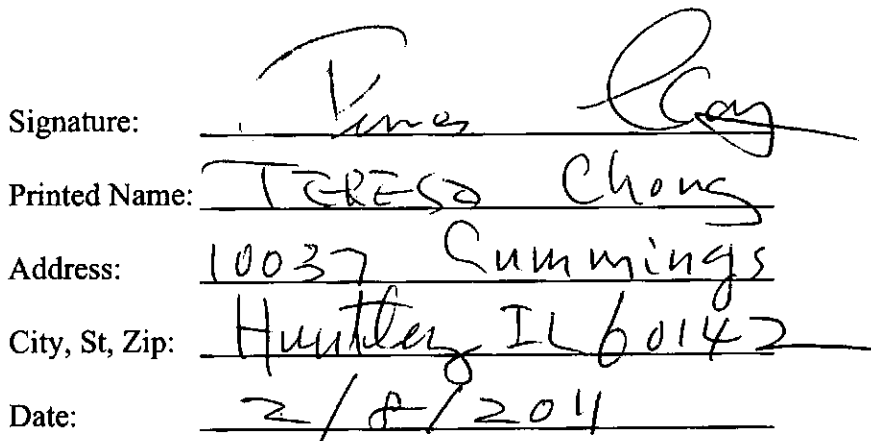 Signature:
Printed Name: TERESA Chong
Address: 10037 Cummings
City, St, Zip: Huntley IL 60142
Date: 2/8/2011